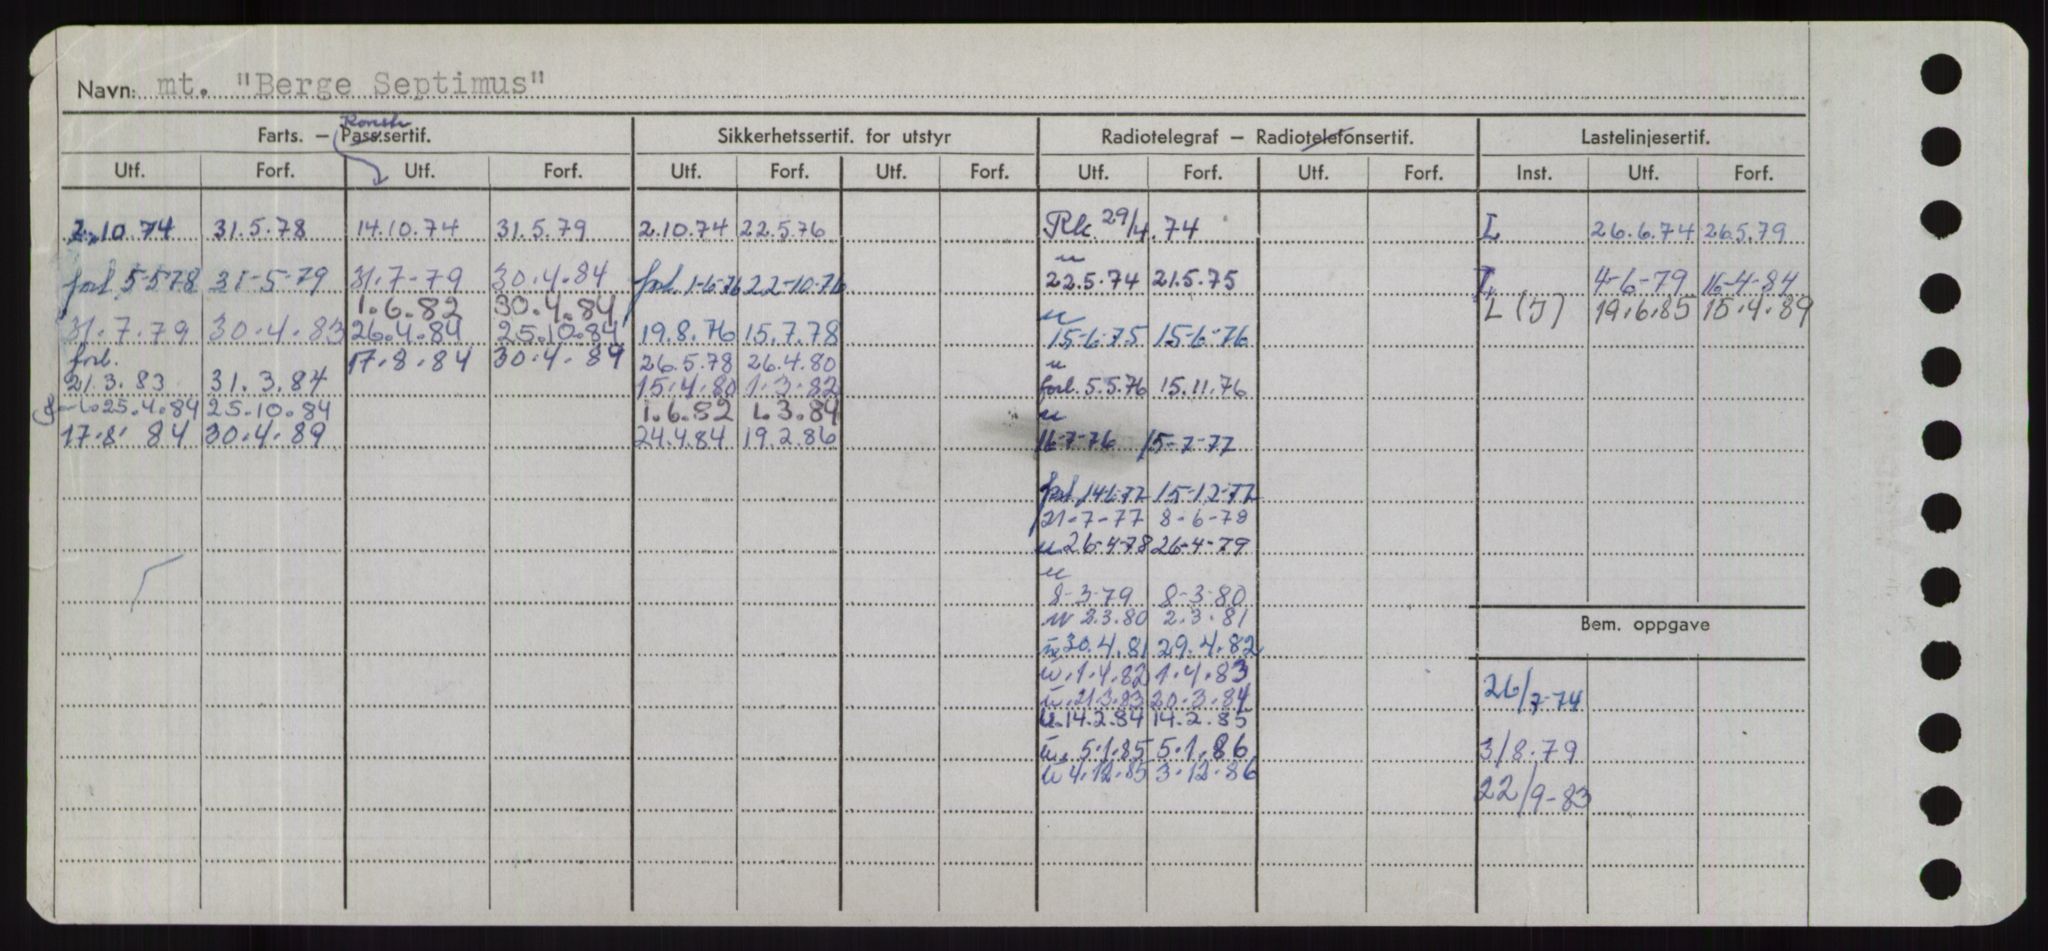 Navn: mt. "Berge Septimus"
Konstr.
Farts. – Pass.sertif. Sikkerhetssertif. for utstyr Radiotelegraf – Radiotelefonsertif. Lastelinjesertif.
Utf. Forf. Utf. Forf. Utf. Forf. Utf. Forf. Utf. Forf. Utf. Forf. Inst. Utf. Forf.
2.10.74 31.5.78 14.10.74 31.5.79 2.10.74 22.5.76 Rk. 29/4.74 L 26.6.74 26.5.79
u
forl 5-5-78 31-5-79 31.7-79 30.4.84 forl. 1-6-76 22-10-76 22.5.74 21.5.75 L 4-6-79 16-4-84
1.6.82 30.4.84 u L (J) 19.6.85 15.4.89
31.7.79 30.4.83 26.4.84 25.10.84 19.8.76 15.7.78 15-6-75 15-6-76
forl. 17.8.84 30.4.89 26.5.78 26.4.80 u
21.3.83 31.3.84 15.4.80 1.3.82 forl. 5.5.76 15.11.76
25.4.84 25.10.84 1.6.82 1.3.84 u
17.8. 84 30.4.89 24.4.84 19.2.86 16-7-76 15-7-77
forl 14-6-77 15-12-77
21-7-77 8-6-78
u 26-4-78 26-4-79
u
8-3-79 8-3-80
u 2.3.80 2.3.81
Bem. oppgave
u 30.4.81 29.4.82
u.1.4.82 1.4.83
26/7-74
u.21.3.83 20.3.84
u.14.2.84 14.2.85
u. 5.1.85 5.1.86
3/8.79
u 4.12.85 3.12.86
22/9-83